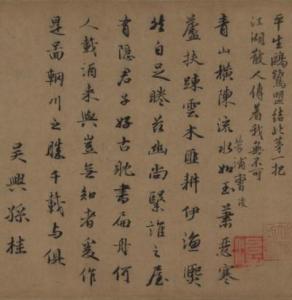 平生鷗鷺盟結此第一把
江湖散人傳着我無不可
青山橫陳流水如玉葉寒
蘆扶踈雲木匪耕伊漁熙
然自足睠茲幽尚繄誰之屋
有隱君子好古耽書扁舟何
人載酒来與豈無知者爰作
是啚輞川之勝千載与俱
吳興孫桂